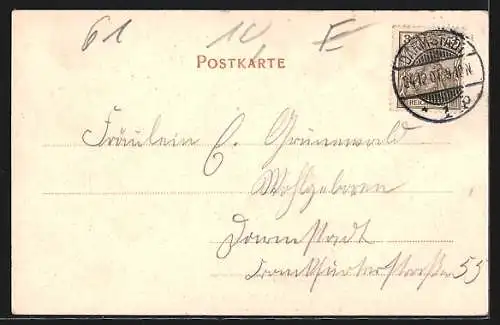 61 10 E
POSTKARTE
DARMSTADT
3
REICH
* 1 p
Fräulein E. Grünewald
Wohlgeboren
Darmstadt
Frankfurterstraße 55